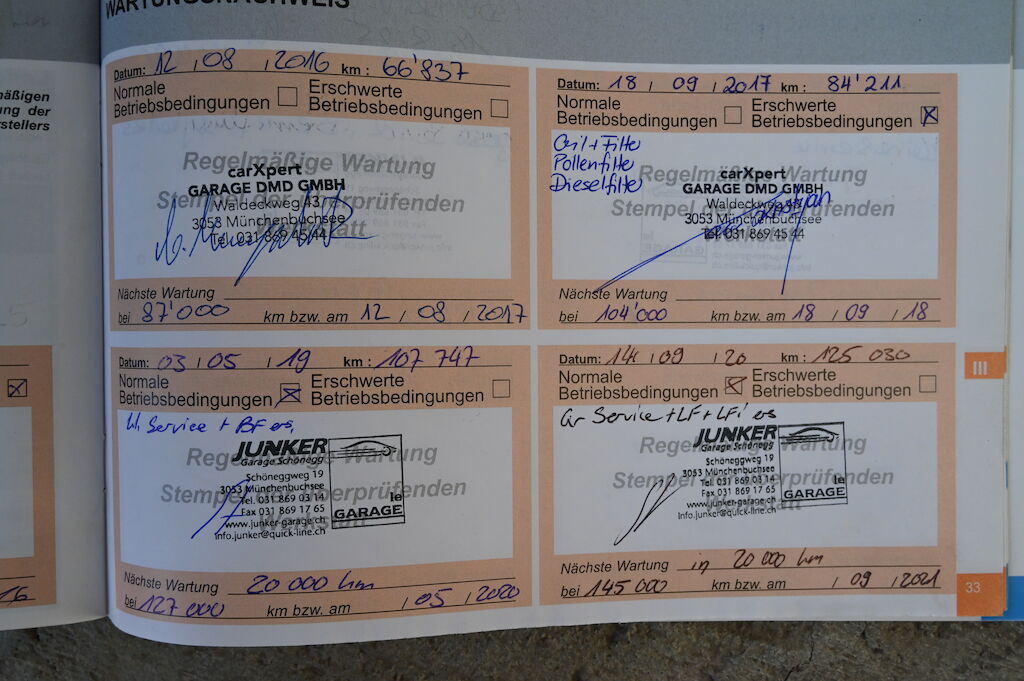 WARTUNGSNACHWEIS
mäßigen
ung der
stellers
Datum: 12 / 08 / 2016 km : 66'837
Normale Betriebsbedingungen
Erschwerte Betriebsbedingungen
Regelmäßige Wartung
Stempel der überprüfenden
Werkstatt
carXpert
GARAGE DMD GMBH
Waldeckweg 43
3053 Münchenbuchsee
Tel. 031 869 45 44
Nächste Wartung
bei 87'000 km bzw. am 12 / 08 / 2017
Datum: 18 / 09 / 2017 km : 84'211
Normale Betriebsbedingungen
Erschwerte Betriebsbedingungen
Oel+Filter
Pollenfilter
Dieselfilter
Regelmäßige Wartung
Stempel der überprüfenden
Werkstatt
carXpert
GARAGE DMD GMBH
Waldeckweg 43
3053 Münchenbuchsee
Tel. 031 869 45 44
Nächste Wartung
bei 104'000 km bzw. am 18 / 09 / 18
Datum: 03 / 05 / 19 km : 107 747
Normale Betriebsbedingungen
Erschwerte Betriebsbedingungen
Service + BF ers,
Regelmäßige Wartung
Stempel der überprüfenden
Werkstatt
JUNKER
Garage Schönegg
Schöneggweg 19
3053 Münchenbuchsee
Tel. 031 869 03 14
Fax 031 869 17 65
www.junker-garage.ch
info.junker@quick-line.ch
le
GARAGE
Nächste Wartung 20 000 km
bei 127 000 km bzw. am / 05 / 2020
Datum: 14 / 09 / 20 km : 125 030
Normale Betriebsbedingungen
Erschwerte Betriebsbedingungen
Gr Service + LF + LFi ers
Regelmäßige Wartung
Stempel der überprüfenden
Werkstatt
JUNKER
Garage Schönegg
Schöneggweg 19
3053 Münchenbuchsee
Tel. 031 869 03 14
Fax 031 869 17 65
www.junker-garage.ch
info.junker@quick-line.ch
le
GARAGE
Nächste Wartung in 20 000 km
bei 145 000 km bzw. am / 09 / 2021
III
33
16